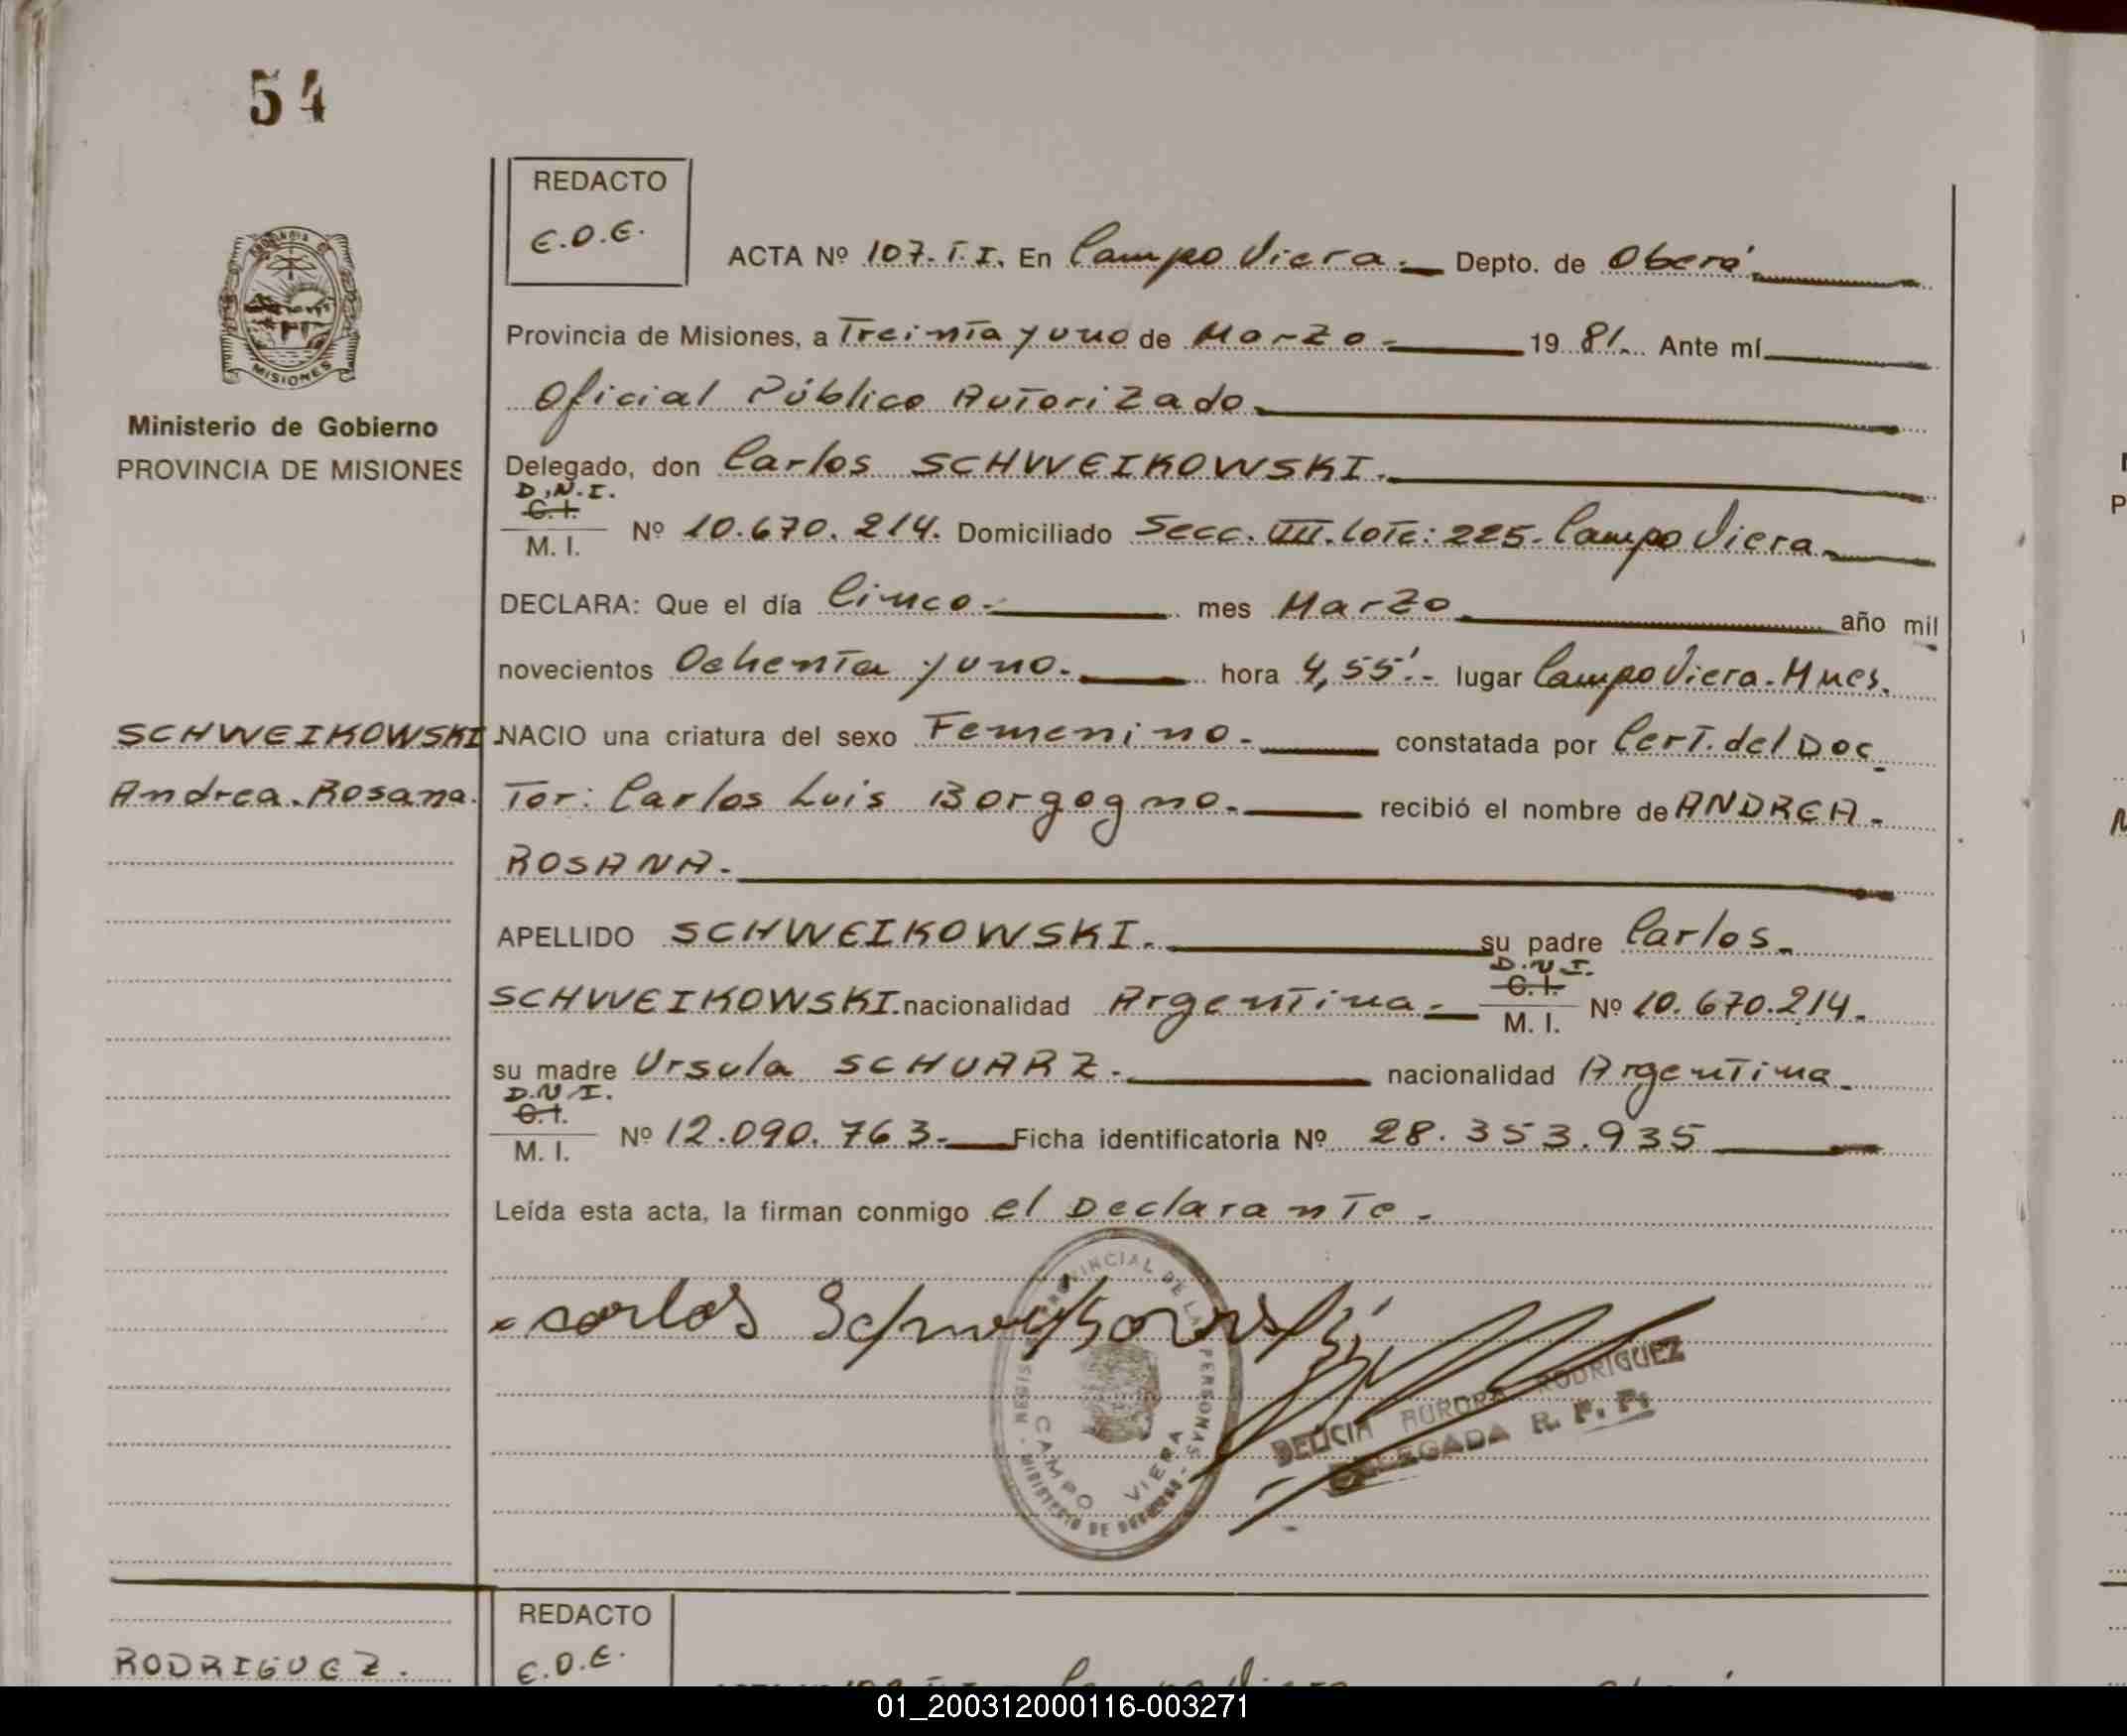 54
REDACTO
E.O.E.
ACTA Nº 107. T. I. En Campo Viera.- Depto. de Oberá
MISIONES
Provincia de Misiones, a Treinta y uno de Marzo- 19 81. Ante mí
Oficial Público Autorizado
Ministerio de Gobierno
PROVINCIA DE MISIONES
Delegado, don Carlos SCHWEIKOWSKI.
D.N.I.
C.I.
M. I. Nº 10.670.214. Domiciliado Secc. VIII. lote: 225. Campo Viera
DECLARA: Que el día Cinco- mes Marzo año mil
novecientos Ochenta y uno. hora 4,55'.- lugar Campo Viera. Mnes.
SCHWEIKOWSKI
Andrea. Rosana.
NACIO una criatura del sexo Femenino- constatada por Cert. del Doc
Tor: Carlos Luis Borgogno. recibió el nombre de ANDREA-
ROSANA-
APELLIDO SCHWEIKOWSKI. su padre Carlos.
D.N.I.
SCHWEIKOWSKI. nacionalidad Argentina- C.I. M. I. Nº 10.670.214.
su madre Ursula SCHUARZ. nacionalidad Argentina.
D.N.I.
C.I.
M. I. Nº 12.090.763- Ficha identificatoria Nº 28.353.935
Leída esta acta, la firman conmigo el Declarante.
Carlos Schweikowski
REGISTRO PROVINCIAL DE LAS PERSONAS - MINISTERIO DE GOBIERNO -
CAMPO VIERA
DELICIA AURORA RODRIGUEZ
DELEGADA R. P. P.
REDACTO
E.O.E.
RODRIGUEZ.
01_200312000116-003271